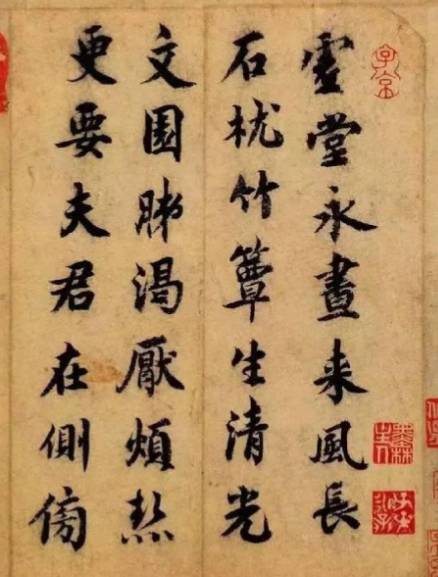 虚堂永晝来風長
石枕竹簟生清光
文園肺渴厭煩
更要夫君在側傍
子京
墨林